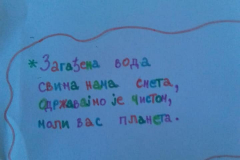 *Загађена вода
свима нама смета,
одржавајмо је чистом,
моли вас планета.